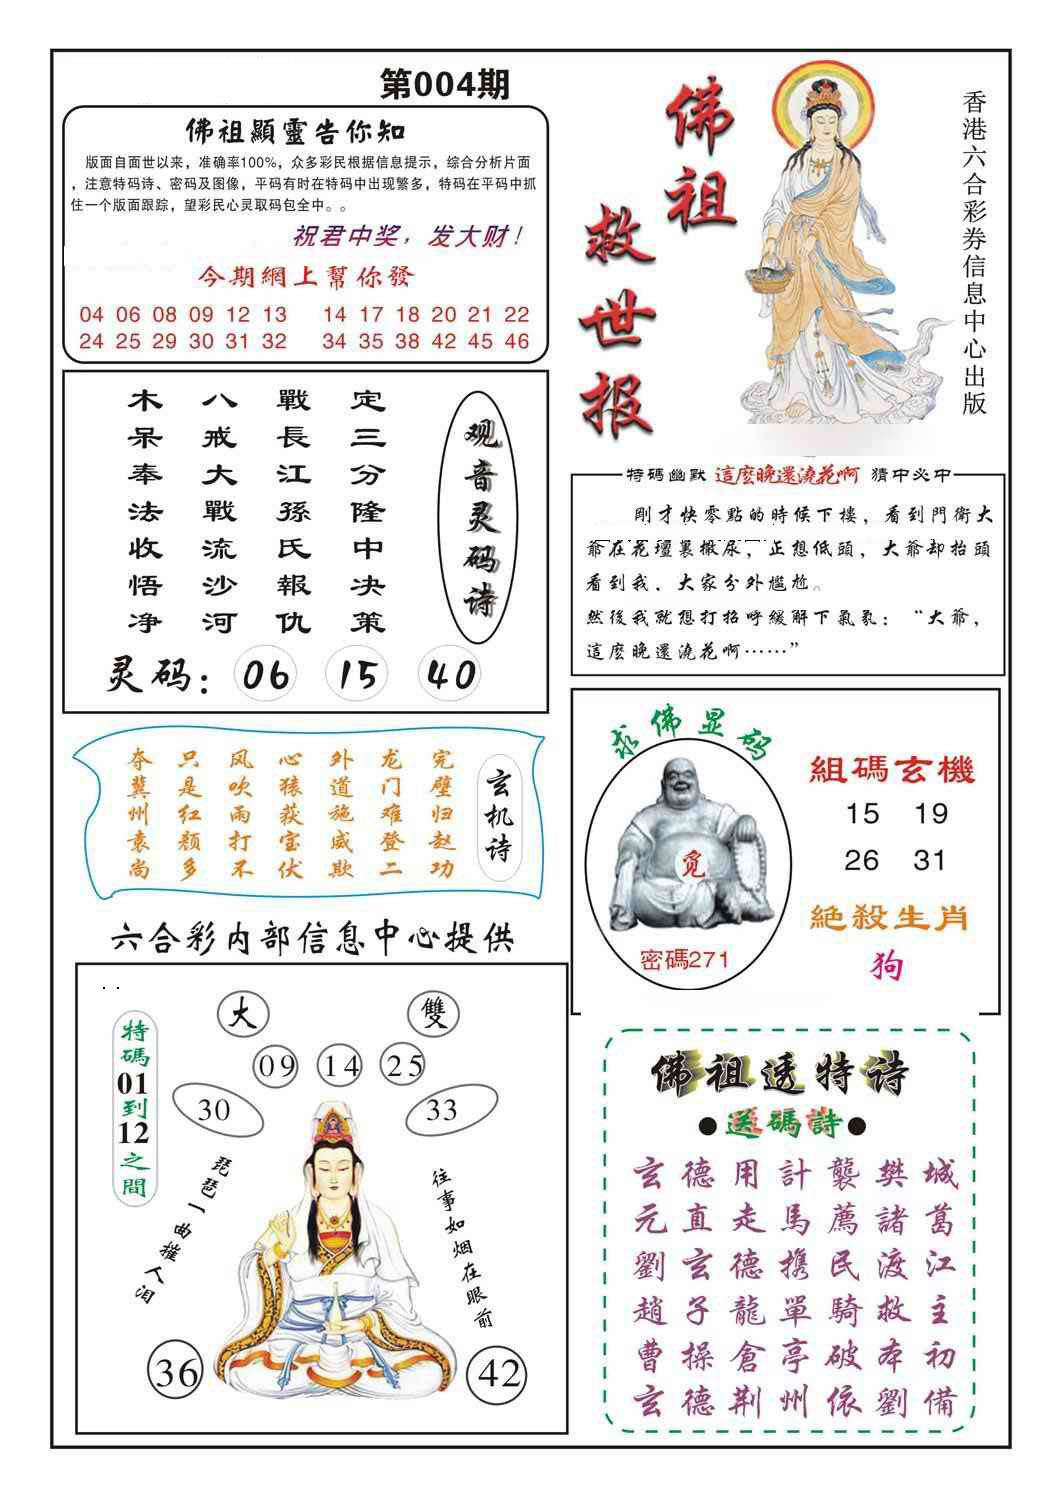 第004期
佛祖顯靈告你知
版面自面世以来，准确率100%，众多彩民根据信息提示，综合分析片面
，注意特码诗、密码及图像，平码有时在特码中出现繁多，特码在平码中抓
住一个版面跟踪，望彩民心灵取码包全中。。
祝君中奖，发大财！
今期網上幫你發
04 06 08 09 12 13 14 17 18 20 21 22
24 25 29 30 31 32 34 35 38 42 45 46
佛祖
救世报
香港六合彩券信息中心出版
观音灵码诗
定三分隆中决策
戰長江孫氏報仇
八戒大戰流沙河
木呆奉法收悟净
灵码：06 15 40
特码幽默 這麽晚還澆花啊 猜中必中
剛才快零點的時候下樓，看到門衛大
爺在花壇裏撒尿，正想低頭，大爺却抬頭
看到我，大家分外尴尬。
然後我就想打招呼緩解下氣氛：“大爺，
這麽晚還澆花啊……”
玄机诗
完璧归赵功
龙门难登二
外道施威欺
心猿获宝伏
风吹雨打不
只是红颜多
夺冀州袁尚
求佛显码
觅
密碼271
組碼玄機
15 19
26 31
絶殺生肖
狗
六合彩内部信息中心提供
特碼01到12之間
大 雙
09 14 25
30 33
琵琶一曲摧人泪
往事如烟在眼前
36 42
佛祖透特诗
●送碼詩●
玄德用計襲樊城
元直走馬薦諸葛
劉玄德携民渡江
趙子龍單騎救主
曹操倉亭破本初
玄德荆州依劉備